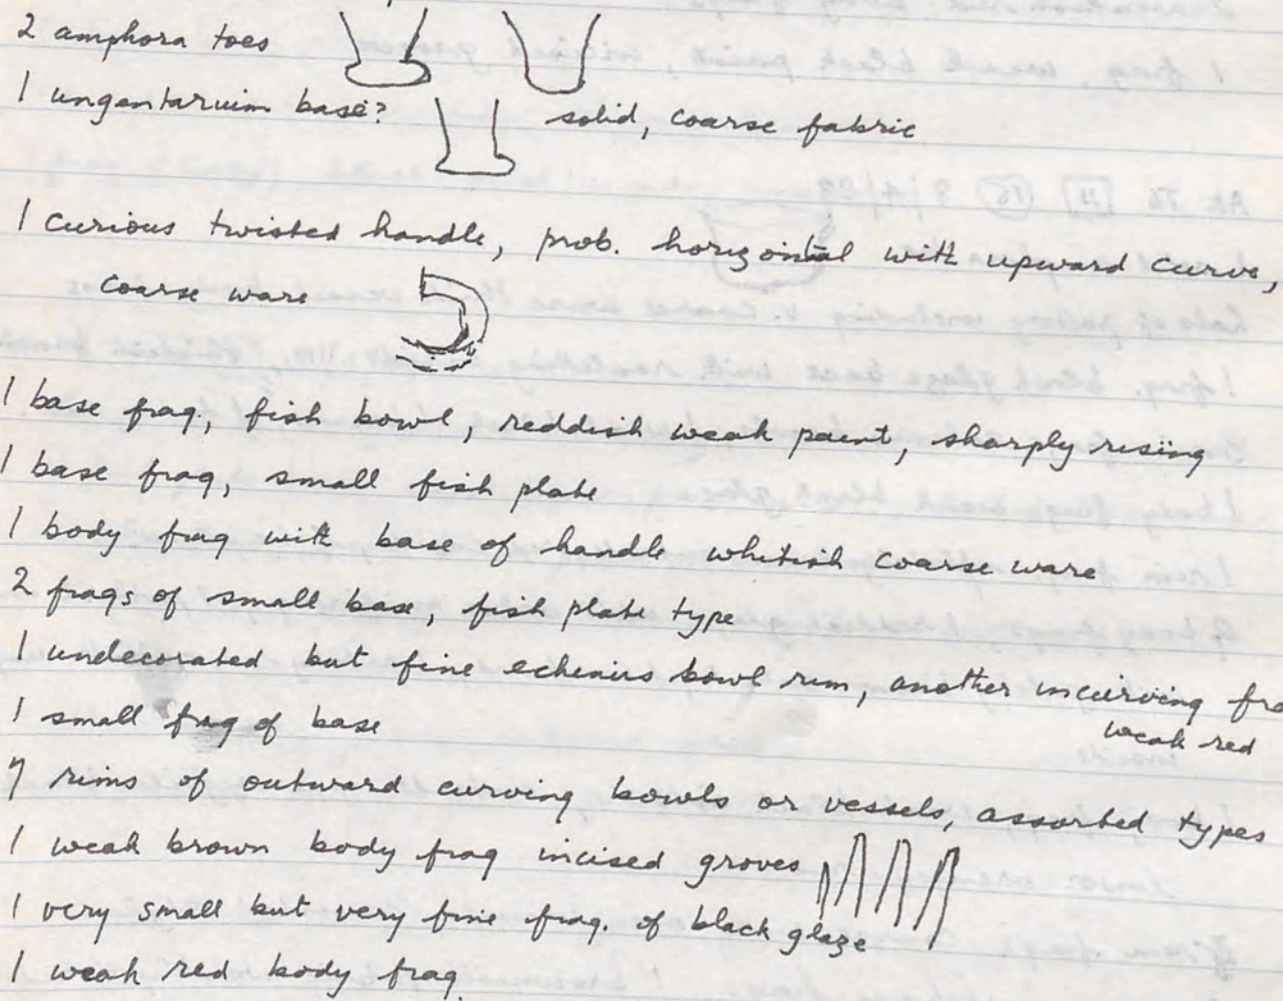 2 amphora toes
1 ungentaruim base? solid, coarse fabric
1 curious twisted handle, prob. horizontal with upward curve,
coarse ware
1 base frag., fish bowl, reddish weak paint, sharply rising
1 base frag, small fish plate
1 body frag with base of handle whitish coarse ware
2 frags of small base, fish plate type
1 undecorated but fine echinus bowl rim, another incurving fra
weak red
1 small frag of base
7 rims of outward curving bowls or vessels, assorted types
1 weak brown body frag incised groves
1 very small but very fine frag. of black glaze
1 weak red body frag.